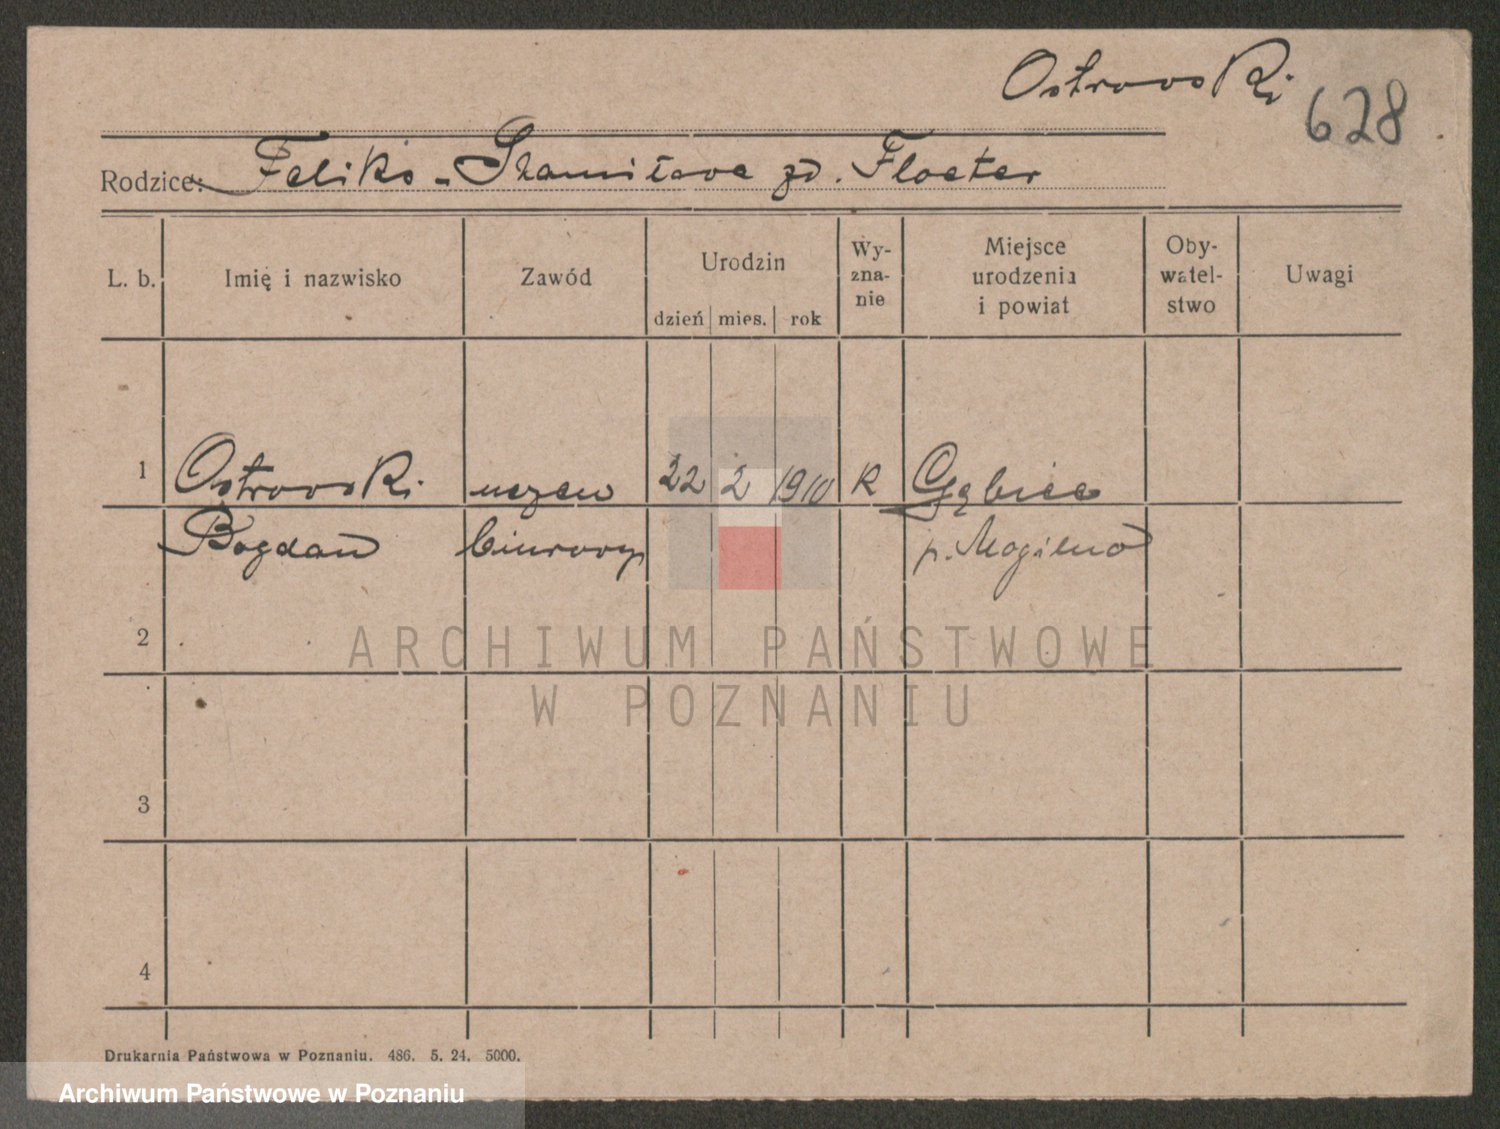 Ostrowski 628
Rodzice: Feliks - Stanisława zd. Floeter
L. b. Imię i nazwisko Zawód Urodzin Wy- zna- nie Miejsce urodzenia i powiat Oby- watel- stwo Uwagi
dzień mies. rok
1 Ostrowski uczeń 22 2 1910 R Gębice
Bogdan biurowy p. Mogilno
2
ARCHIWUM PAŃSTWOWE
W POZNANIU
3
4
Drukarnia Państwowa w Poznaniu. 486. 5. 24. 5000.
Archiwum Państwowe w Poznaniu